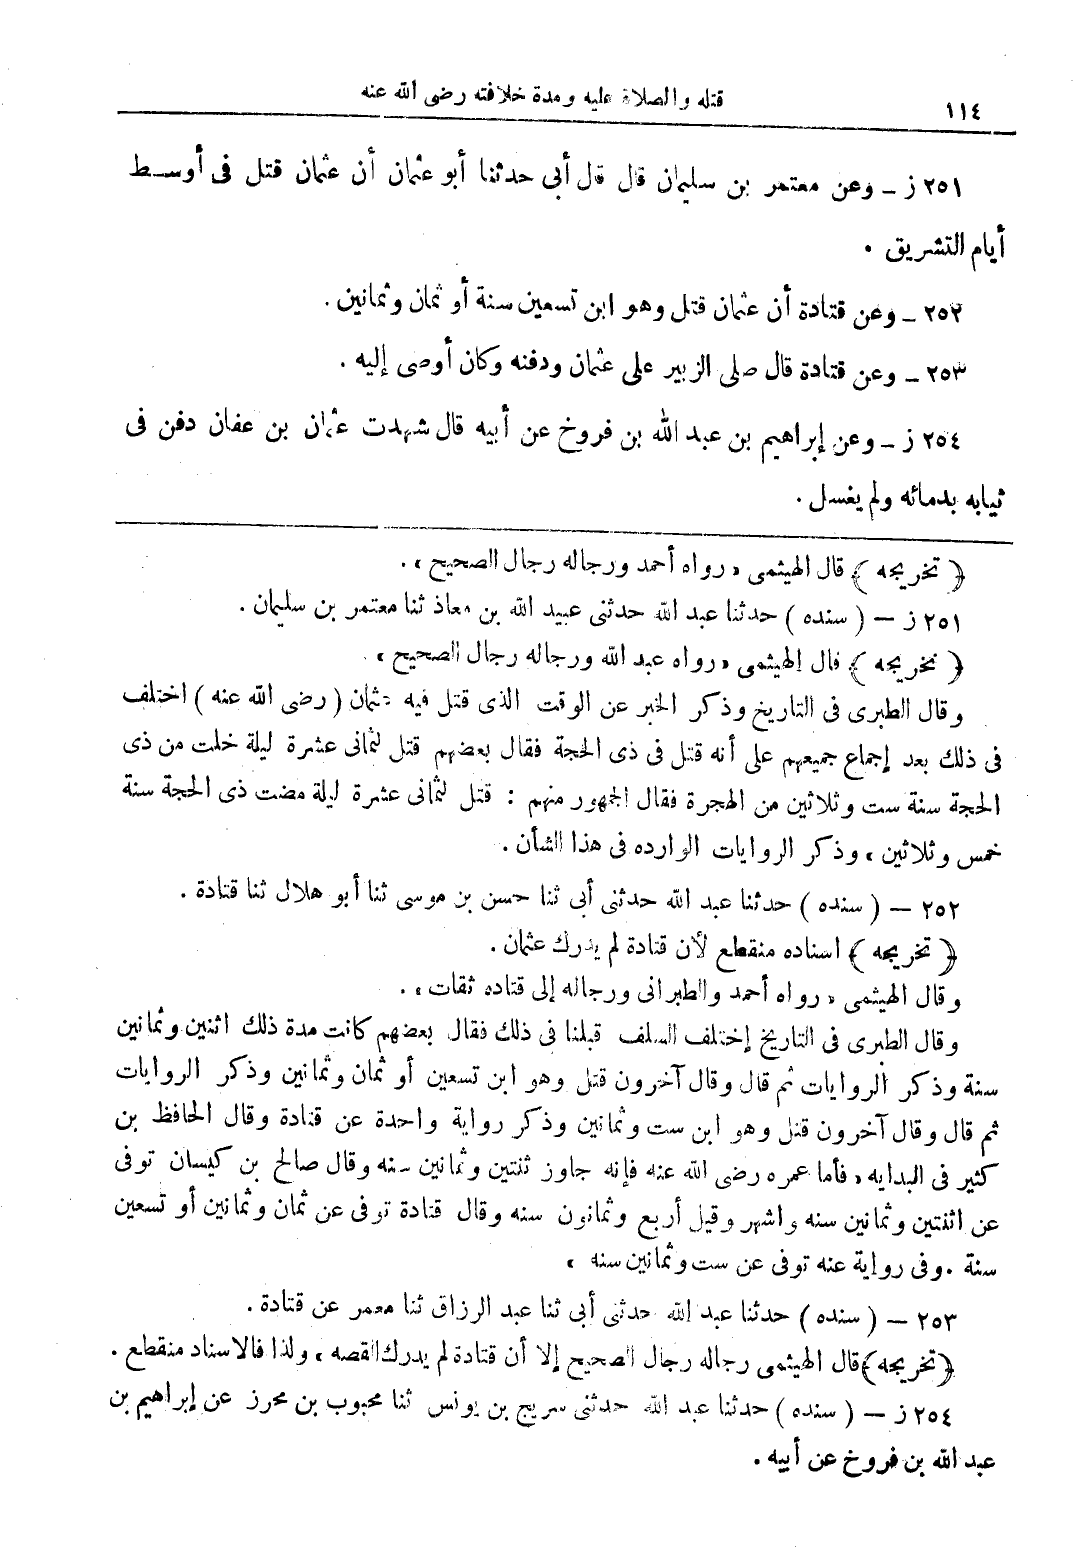 ١١٤
قتله والصلاة عليه ومدة خلافته رضى الله عنه
٢٥١ ز ـ وعن معتمر بن سليمان قال قال أبى حدثنا أبو عثمان أن عثمان قتل فى أوسط
أيام التشريق .
٢٥٢ ـ وعن قتادة أن عثمان قتل وهو ابن تسعين سنة أو ثمان وثمانين .
٢٥٣ ـ وعن قتادة قال صلى الزبير على عثمان ودفنه وكان أوصى إليه .
٢٥٤ ز ـ وعن إبراهيم بن عبد الله بن فروخ عن أبيه قال شهدت عثمان بن عفان دفن فى
ثيابه بدمائه ولم يغسل .
﴿ تخريجه ﴾ قال الهيثمى « رواه أحمد ورجاله رجال الصحيح » .
٢٥١ ز – ( سنده ) حدثنا عبد الله حدثنى عبيد الله بن معاذ ثنا معتمر بن سليمان .
﴿ تخريجه ﴾ قال الهيثمى « رواه عبد الله ورجاله رجال الصحيح » .
وقال الطبرى فى التاريخ وذكر الخبر عن الوقت الذى قتل فيه عثمان ( رضى الله عنه ) اختلف
فى ذلك بعد إجماع جميعهم على أنه قتل فى ذى الحجة فقال بعضهم قتل لثمانى عشرة ليلة خلت من ذى
الحجة سنة ست وثلاثين من الهجرة فقال الجمهور منهم : قتل لثمانى عشرة ليلة مضت ذى الحجة سنة
خمس وثلاثين ، وذكر الروايات الوارده فى هذا الشأن .
٢٥٢ – ( سنده ) حدثنا عبد الله حدثنى أبى ثنا حسن بن موسى ثنا أبو هلال ثنا قتادة .
﴿ تخريجه ﴾ اسناده منقطع لأن قتادة لم يدرك عثمان .
وقال الهيثمى « رواه أحمد والطبرانى ورجاله إلى قتاده ثقات » .
وقال الطبرى فى التاريخ إختلف السلف قبلنا فى ذلك فقال بعضهم كانت مدة ذلك اثنين وثمانين
سنة وذكر الروايات ثم قال وقال آخرون قتل وهو ابن تسعين أو ثمان وثمانين وذكر الروايات
ثم قال وقال آخرون قتل وهو ابن ست وثمانين وذكر رواية واحدة عن قتادة وقال الحافظ بن
كثير فى البدايه « فأما عمره رضى الله عنه فإنه جاوز ثنتين وثمانين سنه وقال صالح بن كيسان توفى
عن اثنتين وثمانين سنه واشهر وقيل أربع وثمانون سنه وقال قتادة توفى عن ثمان وثمانين أو تسعين
سنة . وفى رواية عنه توفى عن ست وثمانين سنه »
٢٥٣ – ( سنده ) حدثنا عبد الله حدثنى أبى ثنا عبد الرزاق ثنا معمر عن قتادة .
﴿تخريجه﴾ قال الهيثمى رجاله رجال الصحيح إلا أن قتادة لم يدرك القصه ، ولذا فالاسناد منقطع .
٢٥٤ ز – ( سنده ) حدثنا عبد الله حدثنى سريج بن يونس ثنا محبوب بن محرز عن إبراهيم بن
عبد الله بن فروخ عن أبيه .